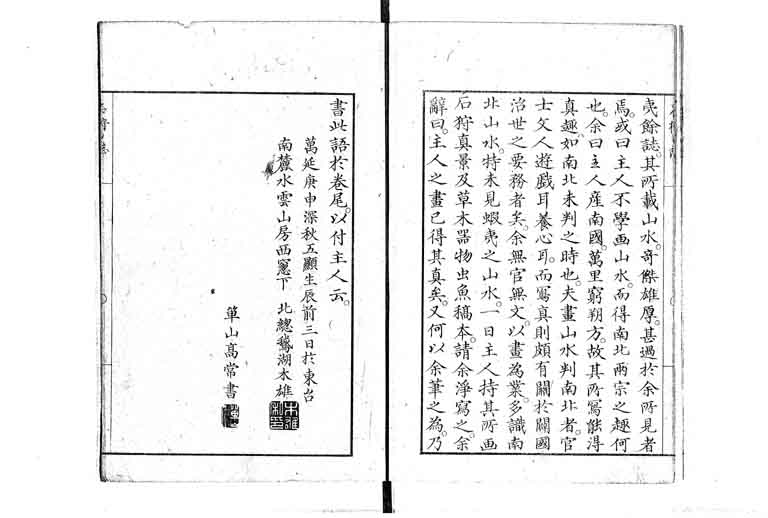 夷餘誌。其所載山水。奇傑雄厚。甚過於余所見者
焉。或曰主人不學画山水。而得南北兩宗之趣何
也。余曰主人産南國。萬里窮朔方。故其所寫能得
真趣。如南北未判之時也。夫畫山水判南北者。官
士文人遊戯耳養心耳。而寫真則頗有關於闢國
治世之要務者矣。余無官無文。以畫為業。多識南
北山水。特未見蝦夷之山水。一日主人持其所画
石狩真景及草木器物虫魚稿本。請余淨寫之。余
辭曰。主人之畫已得其真矣。又何以余筆之為。乃
書此語於卷尾。以付主人云。
萬延庚申深秋五顯生辰前三日於東台
南麓水雲山房西窻下　北總鵞湖木雄
箪山髙常書